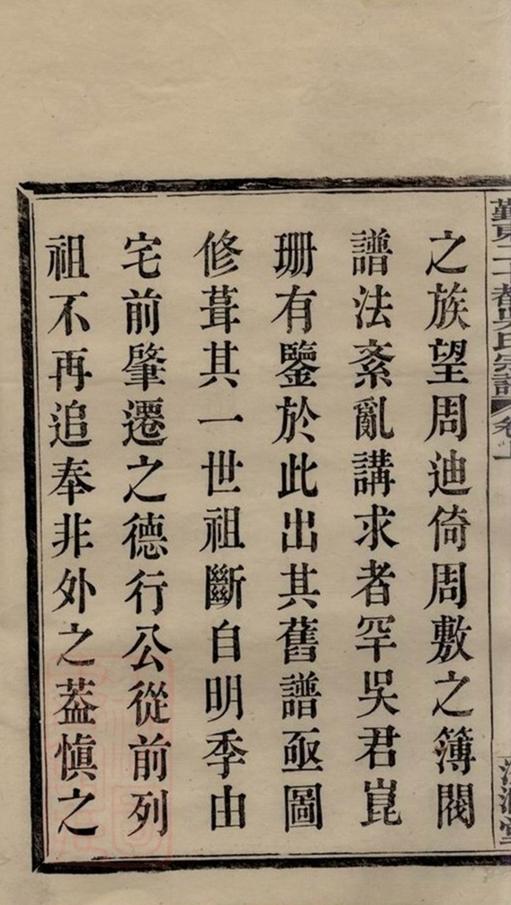 之族望周迪倚周敷之簿閥
譜法紊亂講求者罕吳君崑
珊有鑒於此出其舊譜亟圖
修葺其一世祖斷自明季由
宅前肇遷之德行公從前列
祖不再追奉非外之葢愼之